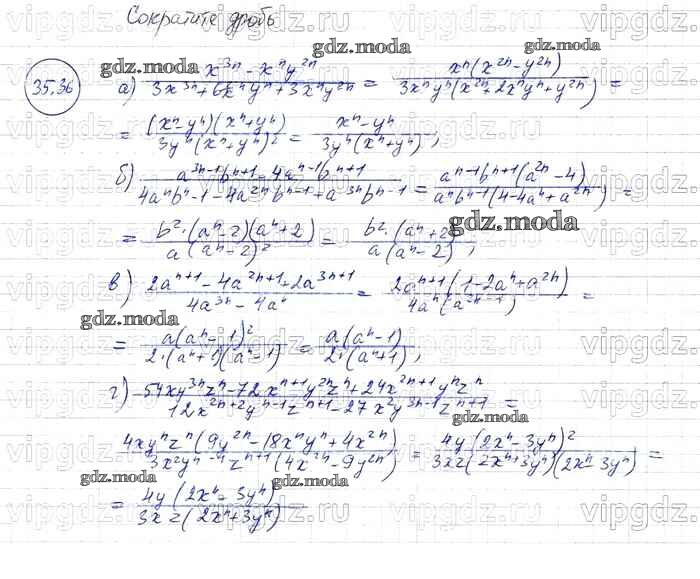 Сократите дробь
35.36
а) x^{3n} - x^n y^{2n} / 3x^{3n} + 6x^n y^n + 3x^n y^{2n} = x^n (x^{2n} - y^{2n}) / 3x^n y^n (x^{2n} + 2x^n y^n + y^{2n}) =
= (x^n - y^n)(x^n + y^n) / 3y^n (x^n + y^n)^2 = x^n - y^n / 3y^n (x^n + y^n) ;
б) a^{3n-1} b^{n+1} - 4a^{n-1} b^{n+1} / 4a^n b^n - 1 - 4a^{2n} b^{n-1} + a^{3n} b^{n-1} = a^{n-1} b^{n+1} (a^{2n} - 4) / a^n b^{n-1} (4 - 4a^n + a^{2n}) =
= b^2 · (a^n - 2)(a^n + 2) / a (a^n - 2)^2 = b^2 · (a^n + 2) / a (a^n - 2) ,
в) 2a^{n+1} - 4a^{2n+1} + 2a^{3n+1} / 4a^{3n} - 4a^n = 2a^{n+1} (1 - 2a^n + a^{2n}) / 4a^n (a^{2n} - 1) =
= a(a^n - 1)^2 / 2·(a^n + 1)(a^n - 1) = a(a^n - 1) / 2·(a^n + 1) ,
г) 54xy^{3n} z^n - 72x^{n+1} y^{2n} z^n + 24x^{2n+1} y^n z^n / 12x^{2n+2} y^{n-1} z^{n+1} - 27x^2 y^{3n-1} z^{n+1} =
4xy^n z^n (9y^{2n} - 18x^n y^n + 4x^{2n}) / 3x^2 y^{n-1} z^{n+1} (4x^{2n} - 9y^{2n}) = 4y (2x^n - 3y^n)^2 / 3xz (2x^n + 3y^n)(2x^n - 3y^n) =
= 4y (2x^n - 3y^n) / 3xz (2x^n + 3y^n)
gdz.moda
vipgdz.ru